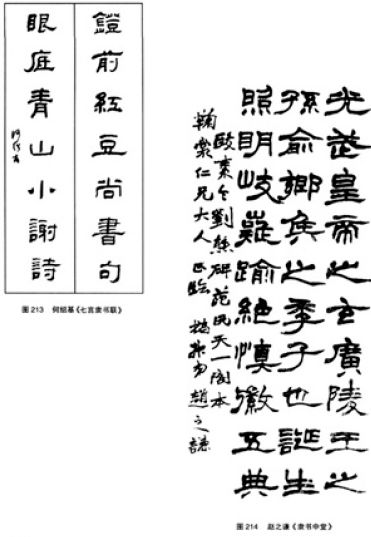 鐙前紅豆尚書句
眼底青山小謝詩
图213 何绍基《七言隶书联》
光武皇帝之玄廣陵王之
孫俞鄉侯之季子也誕生
照明岐嶷踰絕慎徽五典
酸棗令劉熊碑范氏天一閣本
鞠裳仁兄大人正臨 撝叔弟趙之謙
图214 赵之谦《隶书中堂》